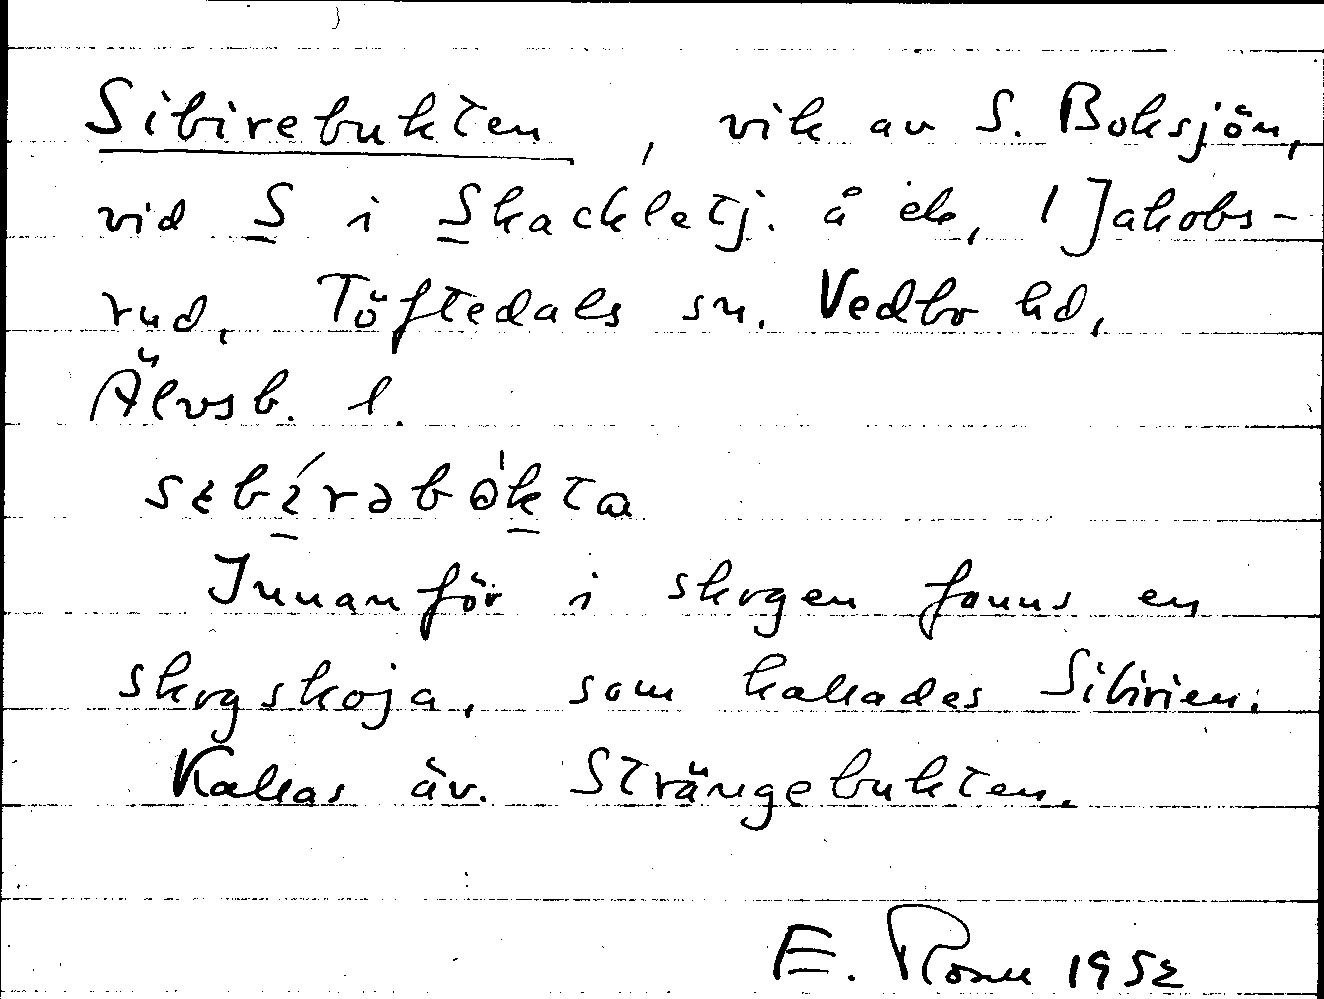 Sibirebukten, vik av S. Boksjön,
vid S i Skackletj. å ek, 1 Jakobs-
rud, Töftedals sn. Vedbo hd,
Älvsb. l.
Innanför i skogen fanns en
skogskoja, som kallades Sibirien.
Kallas äv. Strängebukten.
E. Rosn 1952